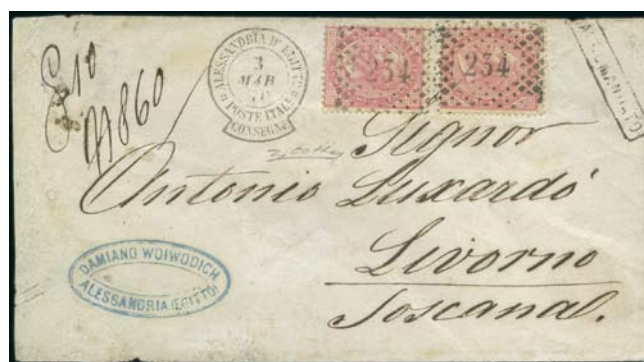 ALESSANDRIA D'EGITTO
3
MAR
70
POSTE ITALIANE
CONSEGNE
234
234
Signor
Antonio Luxardo
Livorno
Toscana.
DAMIANO WOIWODICH
ALESSANDRIA (EGITTO)